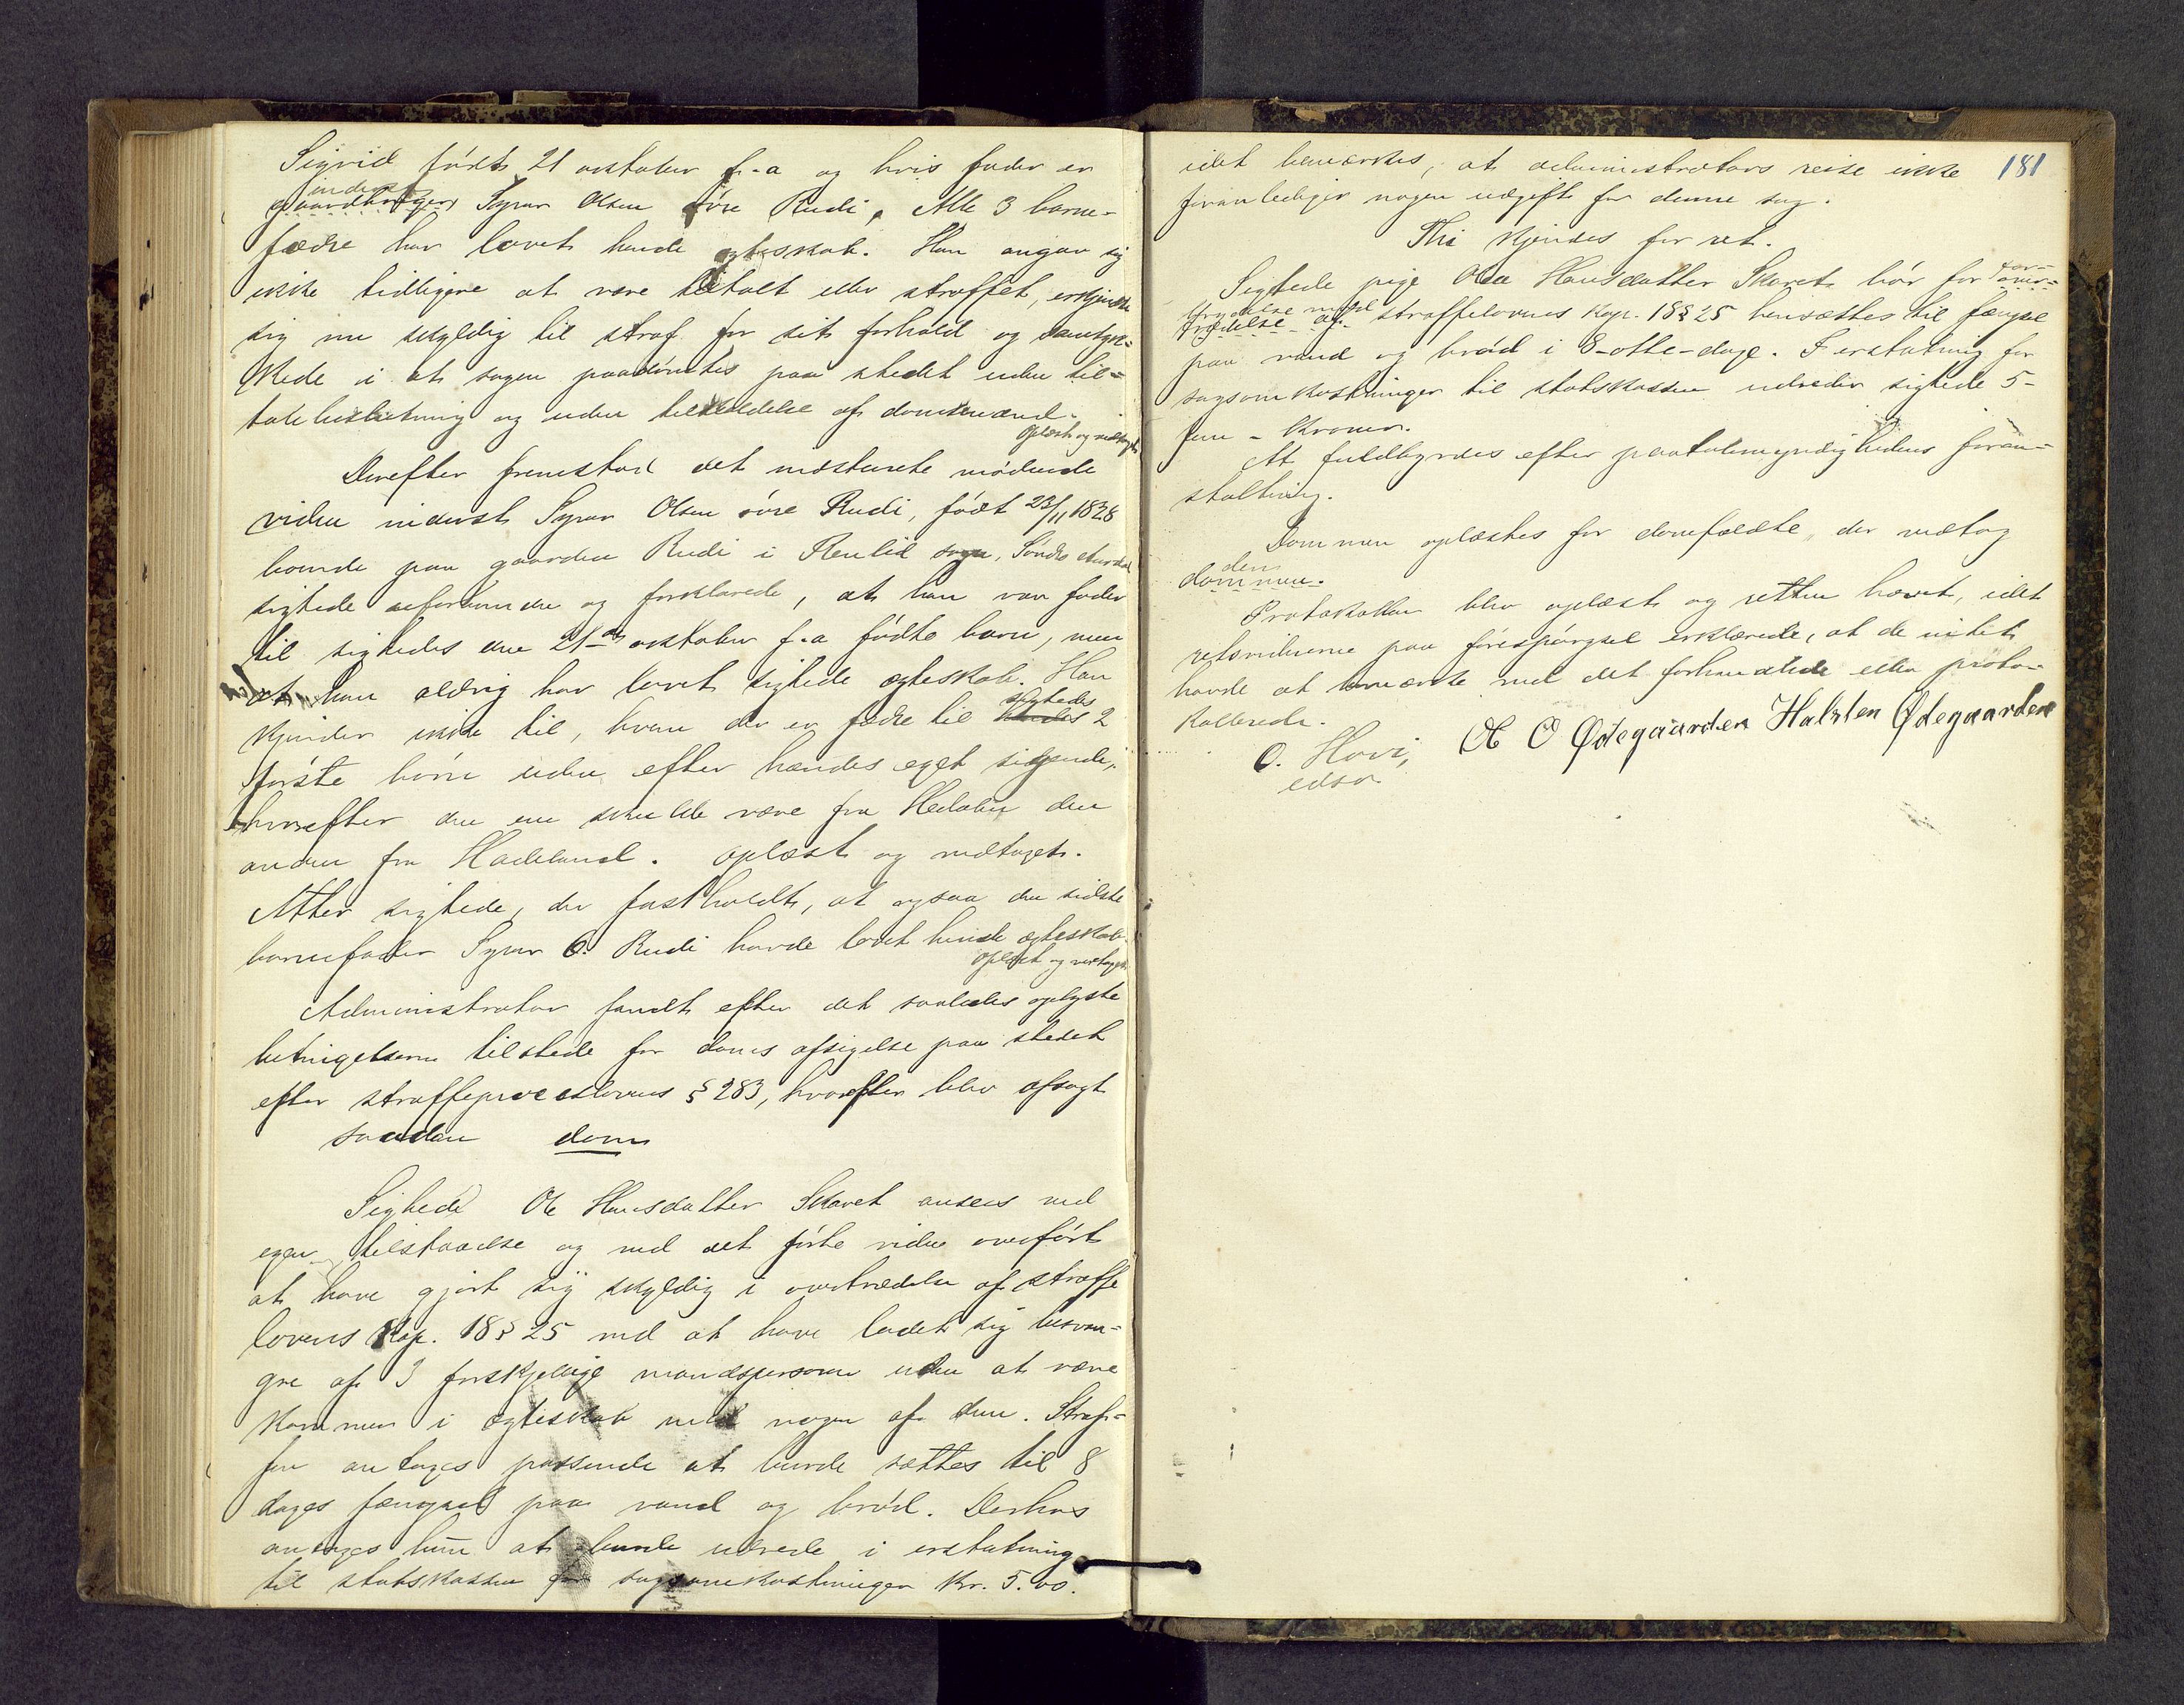 Sigrid født 21 oktober f.a og hvis fader er
inderst
gaardbruger Syver Olsen øvre Rudi, Alle 3 barne-
fædre har lovet hende egteskab. Hun angav sig
ikke tidligere at være tiltalt eller straffet, erkjendte
sig nu skyldig til straf for sit forhold og samtyk-
kede i at sagen paadømtes paa stedet uden til-
talebeslutning og uden tilkaldelse af domsmænd.
Oplæst og vedtaget
Derefter fremstod det næstnævnte mødende
vidne inderst Syver Olsen øvre Rudi, født 23/11 1838
boende paa gaarden Rudi i Renlid sogn, Søndre Aurdal
sigtede uforbunden og forklarede, at han var fader
til sigtedes den 21de oktober f.a fødte barn, men
at han aldrig har lovet sigtede egteskab. Han
sigtedes
kjender ikke til, hvem der er fædre til hendes 2
første børn uden efter hendes eget sigende,
hvorefter den ene skulde være fra Hedalen den
anden fra Hadeland. Oplæst og vedtaget.
Atter sigtede, der fastholdt, at ogsaa den sidste
barnefader Syver O. Rudi havde lovet hende egteskab.
Oplæst og vedtaget
Administrator fandt efter det saaledes oplyste
betingelserne tilstede for doms afsigelse paa stedet
efter straffeproceslovens § 283, hvorefter blev afsagt
saadan dom
Sigtede Ola Hansdatter Skaret ansees ved
egen tilstaaelse og ved det førte vidne overført
at have gjort sig skyldig i overtrædelse af straffe
lovens Kap. 18 § 25 ved at have ladet sig besvan-
gre af 3 forskjellige mandspersoner uden at være
kommen i egteskab med nogen af dem. Straf-
fen antages passende at burde sættes til 8
dages fængsel paa vand og brød. Derhos
antages hun at burde udrede i erstatning
til statskassen for sagsomkostninger Kr. 5.00.
181
idet bemærkes, at administrators reise ikke
foranlediger nogen udgift for denne sag.
Thi kjendes for ret.
Sigtede pige Ola Hansdatter Skaret bør for over-
for-
brydelse mod
trædelse af straffelovens Kap. 18 § 25 hensættes til fængsel
paa vand og brød i 8-otte-dage. I erstatning for
sagsomkostninger til statskassen udreder sigtede 5-
fem - Kroner.
At fuldbyrdes efter paatalemyndighedens foran-
staltning.
Dommen oplæstes for domfældte, der vedtog
dem
dommen.
Protokollen blev oplæst og retten hævet, idet
retsvidnerne paa forespørgsel erklærede, at de intet
havde at bemærke ved det forhandlede eller proto-
kollerede.
O. Hovi, O O Ødegaarden Halsten Ødegaarden
edsv.